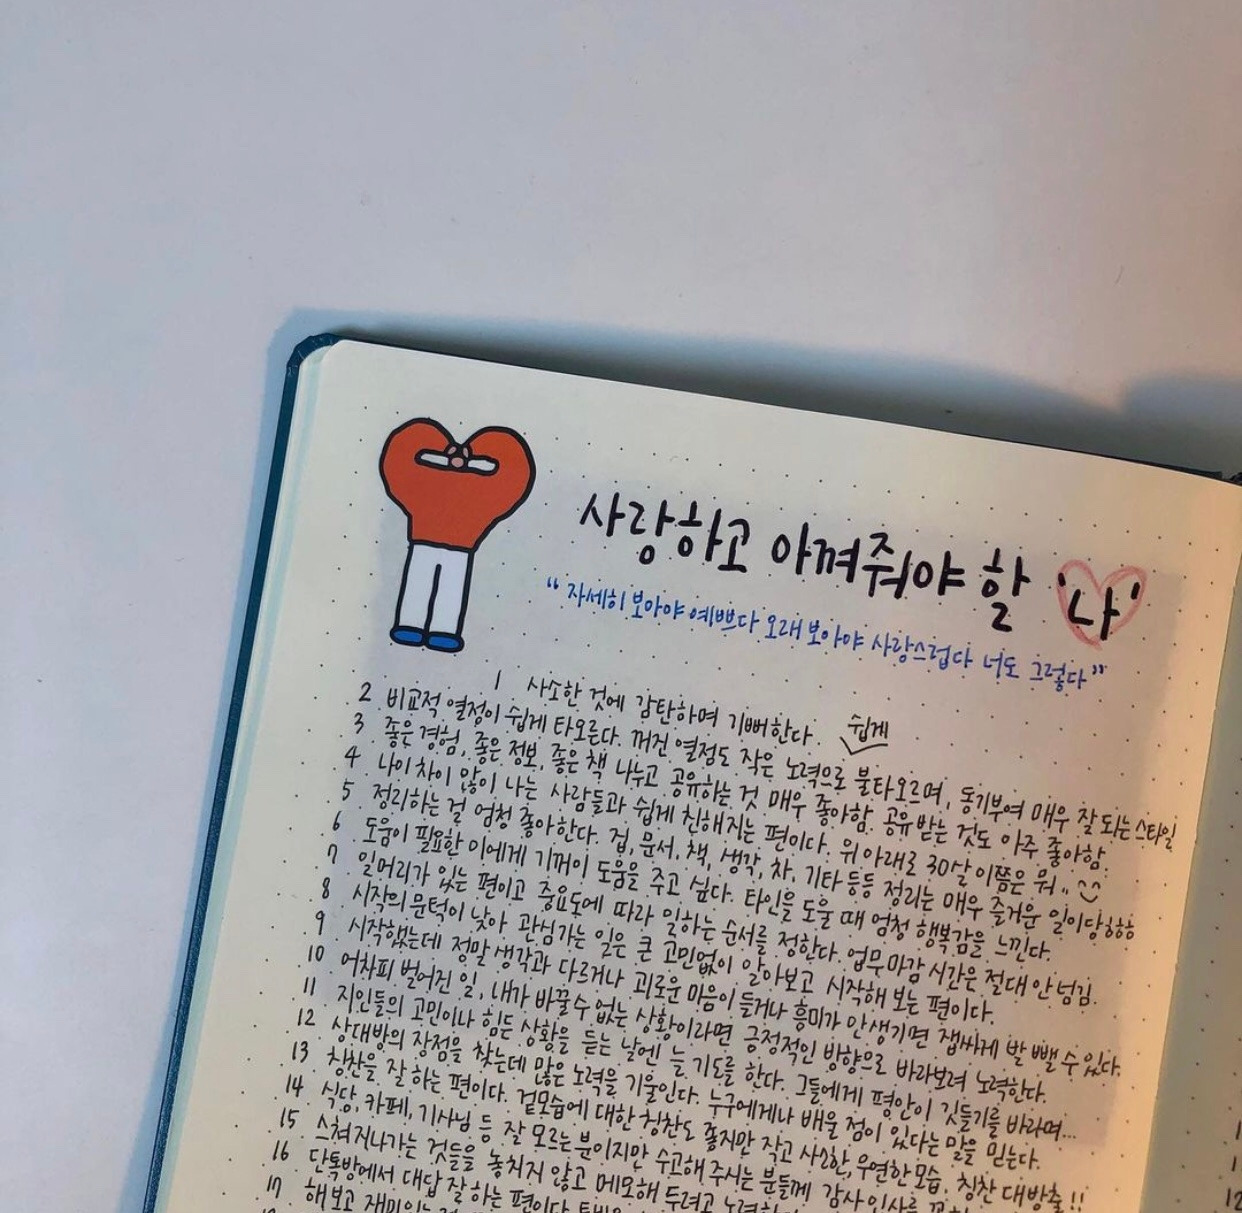 사랑하고 아껴줘야 할 '나'
“자세히 보아야 예쁘다 오래 보아야 사랑스럽다 너도 그렇다”
1 사소한 것에 감탄하며 기뻐한다.
쉽게
2 비교적 열정이 쉽게 타오른다. 꺼진 열정도 작은 노력으로 불타오르며, 동기부여 매우 잘 되는 스타일
3 좋은 경험, 좋은 정보, 좋은 책 나누고 공유하는 것 매우 좋아함. 공유 받는 것도 아주 좋아함.
4 나이 차이 많이 나는 사람들과 쉽게 친해지는 편이다. 위 아래로 30살 이쯤은 뭐..
5 정리하는 걸 엄청 좋아한다. 집, 문서, 책, 생각, 차, 기타 등등 정리는 매우 즐거운 일이당ㅎㅎㅎ
6 도움이 필요한 이에게 기꺼이 도움을 주고 싶다. 타인을 도울 때 엄청 행복감을 느낀다.
7 일머리가 있는 편이고 중요도에 따라 일하는 순서를 정한다. 업무 마감 시간은 절대 안 넘김.
8 시작의 문턱이 낮아 관심가는 일은 큰 고민없이 알아보고 시작해 보는 편이다.
9 시작했는데 정말 생각과 다르거나 괴로운 마음이 들거나 흥미가 안생기면 잽싸게 발 뺄 수 있다.
10 어차피 벌어진 일, 내가 바꿀 수 없는 상황이라면 긍정적인 방향으로 바라보려 노력한다.
11 지인들의 고민이나 힘든 상황을 듣는 날엔 늘 기도를 한다. 그들에게 평안이 깃들기를 바라며...
12 상대방의 장점을 찾는데 많은 노력을 기울인다. 누구에게나 배울 점이 있다는 말을 믿는다.
13 칭찬을 잘 하는 편이다. 겉모습에 대한 칭찬도 좋지만 작고 사소한, 우연한 모습, 칭찬 대방출!!
14 식당, 카페, 기사님 등 잘 모르는 분이지만 수고해 주시는 분들께 감사 인사를
15 스쳐 지나가는 것들을 놓치지 않고 메모해 두려고
16 단톡방에서 대답 잘 하는 편이다.
17 해보고